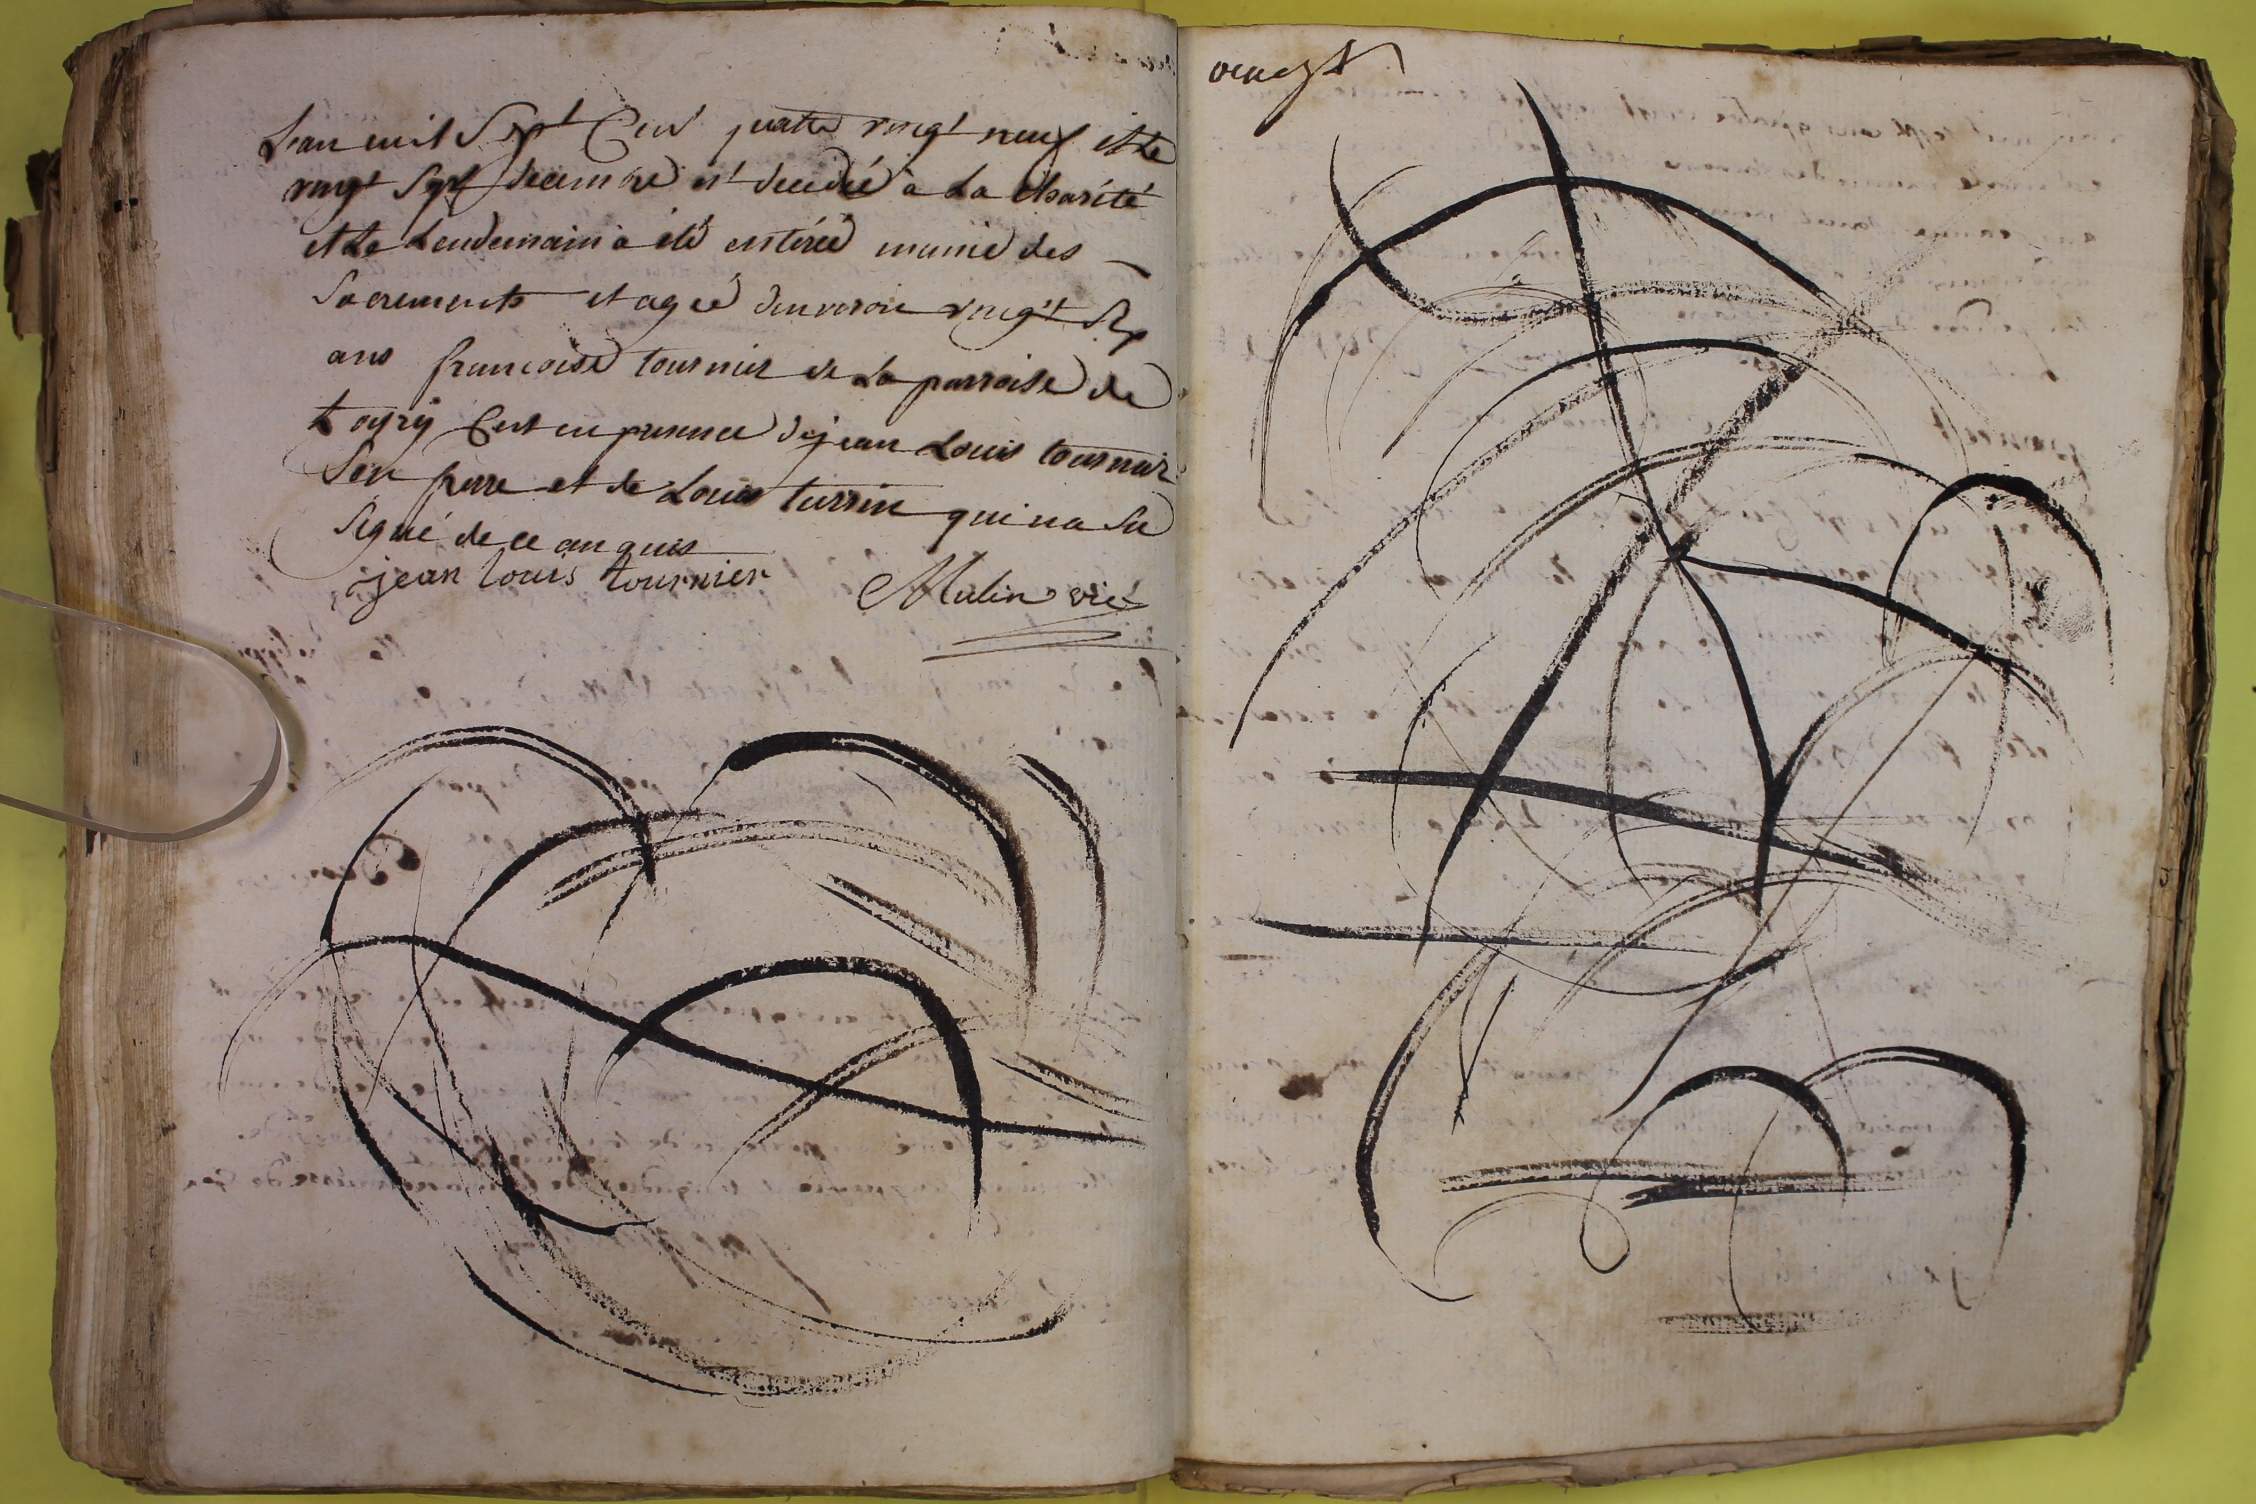 Lan mil Sept Cent quatre vingt neuf et Le
vingt Sept decembre est decedé à La charité
et Le Lendemain a été enterée munie des
Sacrements et agée denviron vingt Six
ans francoise tournier de La parroise de
C'est en presence de jean Louis tournier
Son frere et de Louis turrin qui na Su
Signé de ce enquis
jean louis tournier
Mulin vic